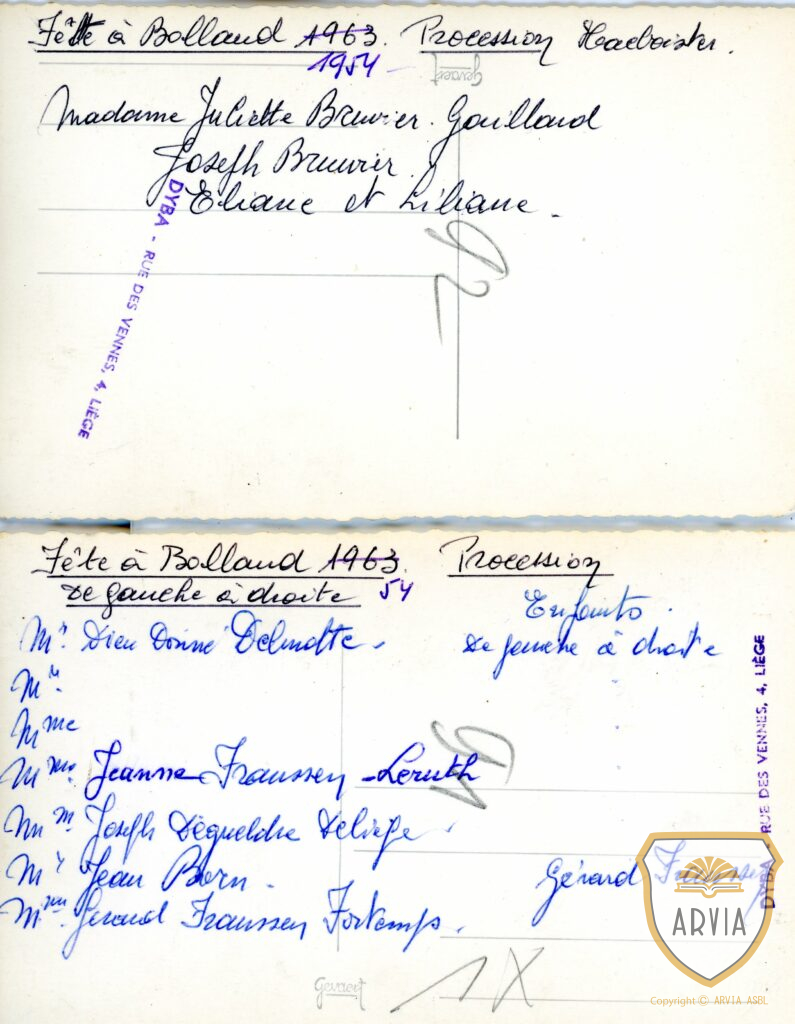 Fête à Bolland 1963. Procession Hacboister.
1954
Gevaert
Madame Juliette Bruwier. Gaillard
Joseph Bruwier.
Eliane et Liliane.
DYBA - RUE DES VENNES, 4, LIÈGE
92
Fête à Bolland 1963. Procession
54
De gauche à droite
Enfants.
De gauche à droite
Mr. Dieu Donné Delmotte.
Mr.
Mme
Mme Jeanne Franssen - Leruth
Mme Joseph Degueldre Deliège.
Mr Jean Born.
Gérard Franssen
Mme. Gerard Franssen Fortemps.
DYBA - RUE DES VENNES, 4, LIÈGE
Gevaert
ARVIA
Copyright © ARVIA ASBL